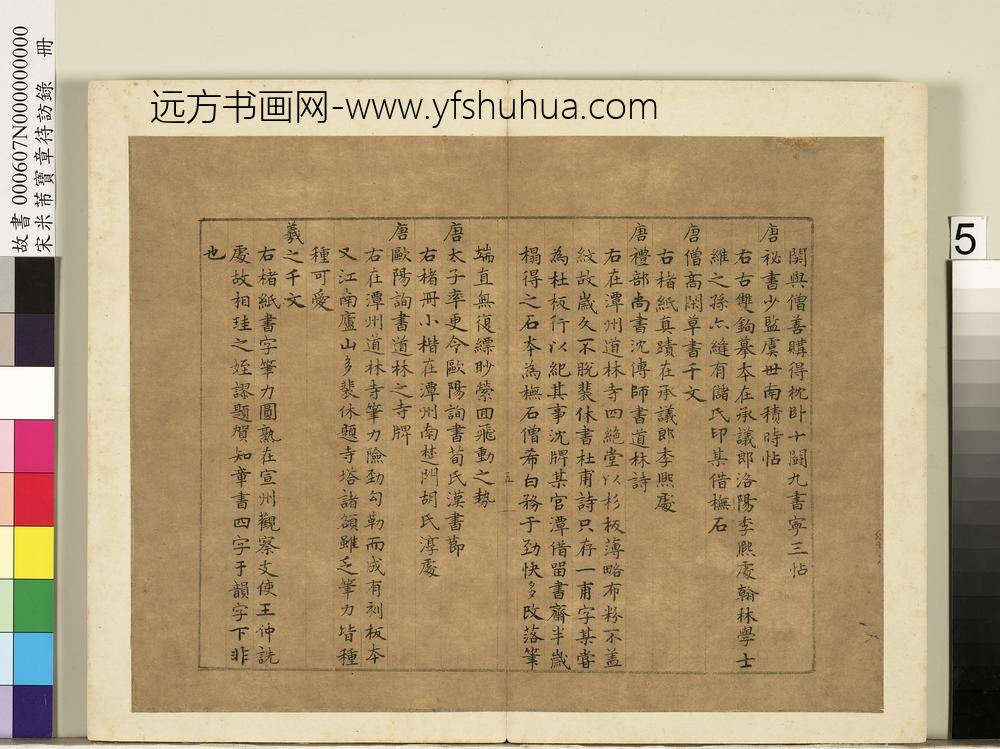 远方书画网-www.yfshuhua.com
故書 000607N000000000
宋米芾寶章待訪錄 冊
5
関與僧善購得枕卧十鬭九書寧三帖
唐秘書少監虞世南積時帖
右古雙鈎摹夲在承議郎洛陽李熙處翰林學士
維之孫六縫有儲氏印某借橅石
唐僧高閑草書千文
右楮紙真蹟在承議郎李熙處
唐禮部尚書沈傳師書道林詩
右在潭州道林寺四絶堂以杉板薄略布粉不盖
紋故歲久不脫裴休書杜甫詩只存一甫字某嘗
為杜板行以紀其事沈牌某官潭借留書齋半歲
榻得之石夲為橅石僧希白務于勁快多改落筆
五
端直無復縹眇縈回飛動之勢
唐太子率更令歐陽詢書荀氏漢書節
右楮冊小楷在潭州南楚門胡氏淳處
唐歐陽詢書道林之寺牌
右在潭州道林寺筆力險勁勾勒而成有刻板本
又江南廬山多裴休題寺塔諸額雖乏筆力皆種
種可愛
羲之千文
右楮紙書字筆力圓熟在宣州觀察支使王仲詵
處故相珪之姪謬題賀知章書四字于韻字下非
也